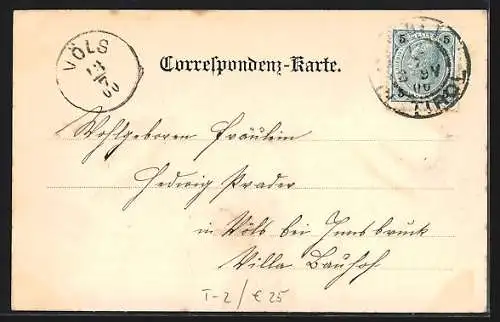 VÖLS
13/7 00
Correspondenz-Karte.
5 5
TIROL
Wohlgeboren Fräulein
Hedwig Prader
in Völs bei Innsbruck
Villa Bauhof
T-2/€25